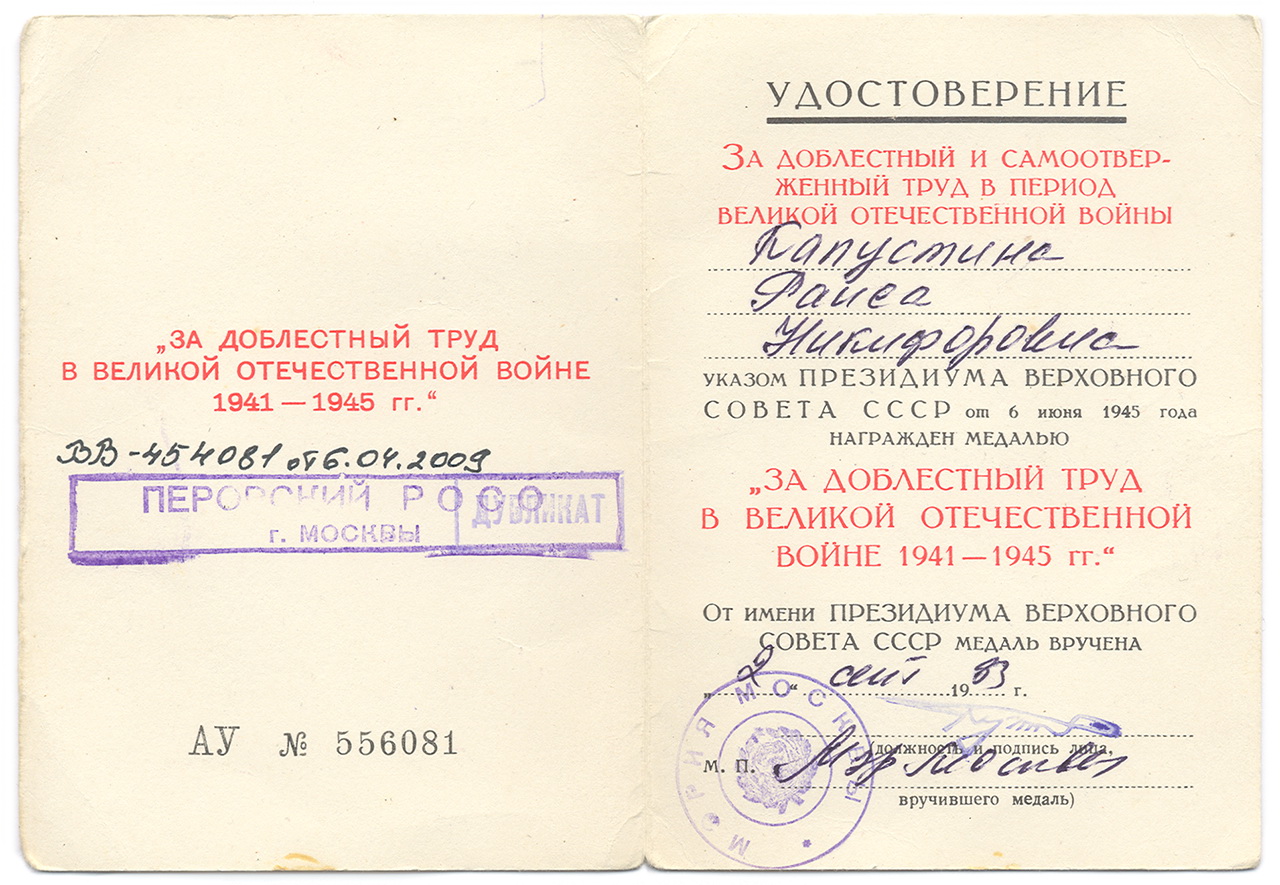 „ЗА ДОБЛЕСТНЫЙ ТРУД
В ВЕЛИКОЙ ОТЕЧЕСТВЕННОЙ ВОЙНЕ
1941 — 1945 гг.“
ВВ-454081 от 6.04.2009
ПЕРОВСКИЙ РОСО
г. МОСКВЫ
ДУБЛИКАТ
АУ № 556081
УДОСТОВЕРЕНИЕ
ЗА ДОБЛЕСТНЫЙ И САМООТВЕР-
ЖЕННЫЙ ТРУД В ПЕРИОД
ВЕЛИКОЙ ОТЕЧЕСТВЕННОЙ ВОЙНЫ
Капустина
Раиса
Никифоровна
УКАЗОМ ПРЕЗИДИУМА ВЕРХОВНОГО
СОВЕТА СССР от 6 июня 1945 года
НАГРАЖДЕН МЕДАЛЬЮ
„ЗА ДОБЛЕСТНЫЙ ТРУД
В ВЕЛИКОЙ ОТЕЧЕСТВЕННОЙ
ВОЙНЕ 1941 — 1945 гг.“
ОТ ИМЕНИ ПРЕЗИДИУМА ВЕРХОВНОГО
СОВЕТА СССР МЕДАЛЬ ВРУЧЕНА
„2“ сент 1993 г.
(должность и подпись лица,
М. П. Мэр Москвы
вручившего медаль)
МЭРИЯ МОСКВЫ